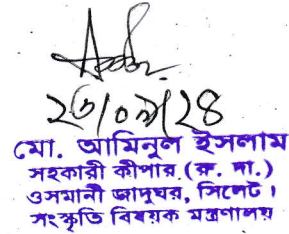 ২৬/০৯/২৪
মো. আমিনুল ইসলাম
সহকারী কীপার (রু. দা.)
ওসমানী জাদুঘর, সিলেট।
সংস্কৃতি বিষয়ক মন্ত্রণালয়